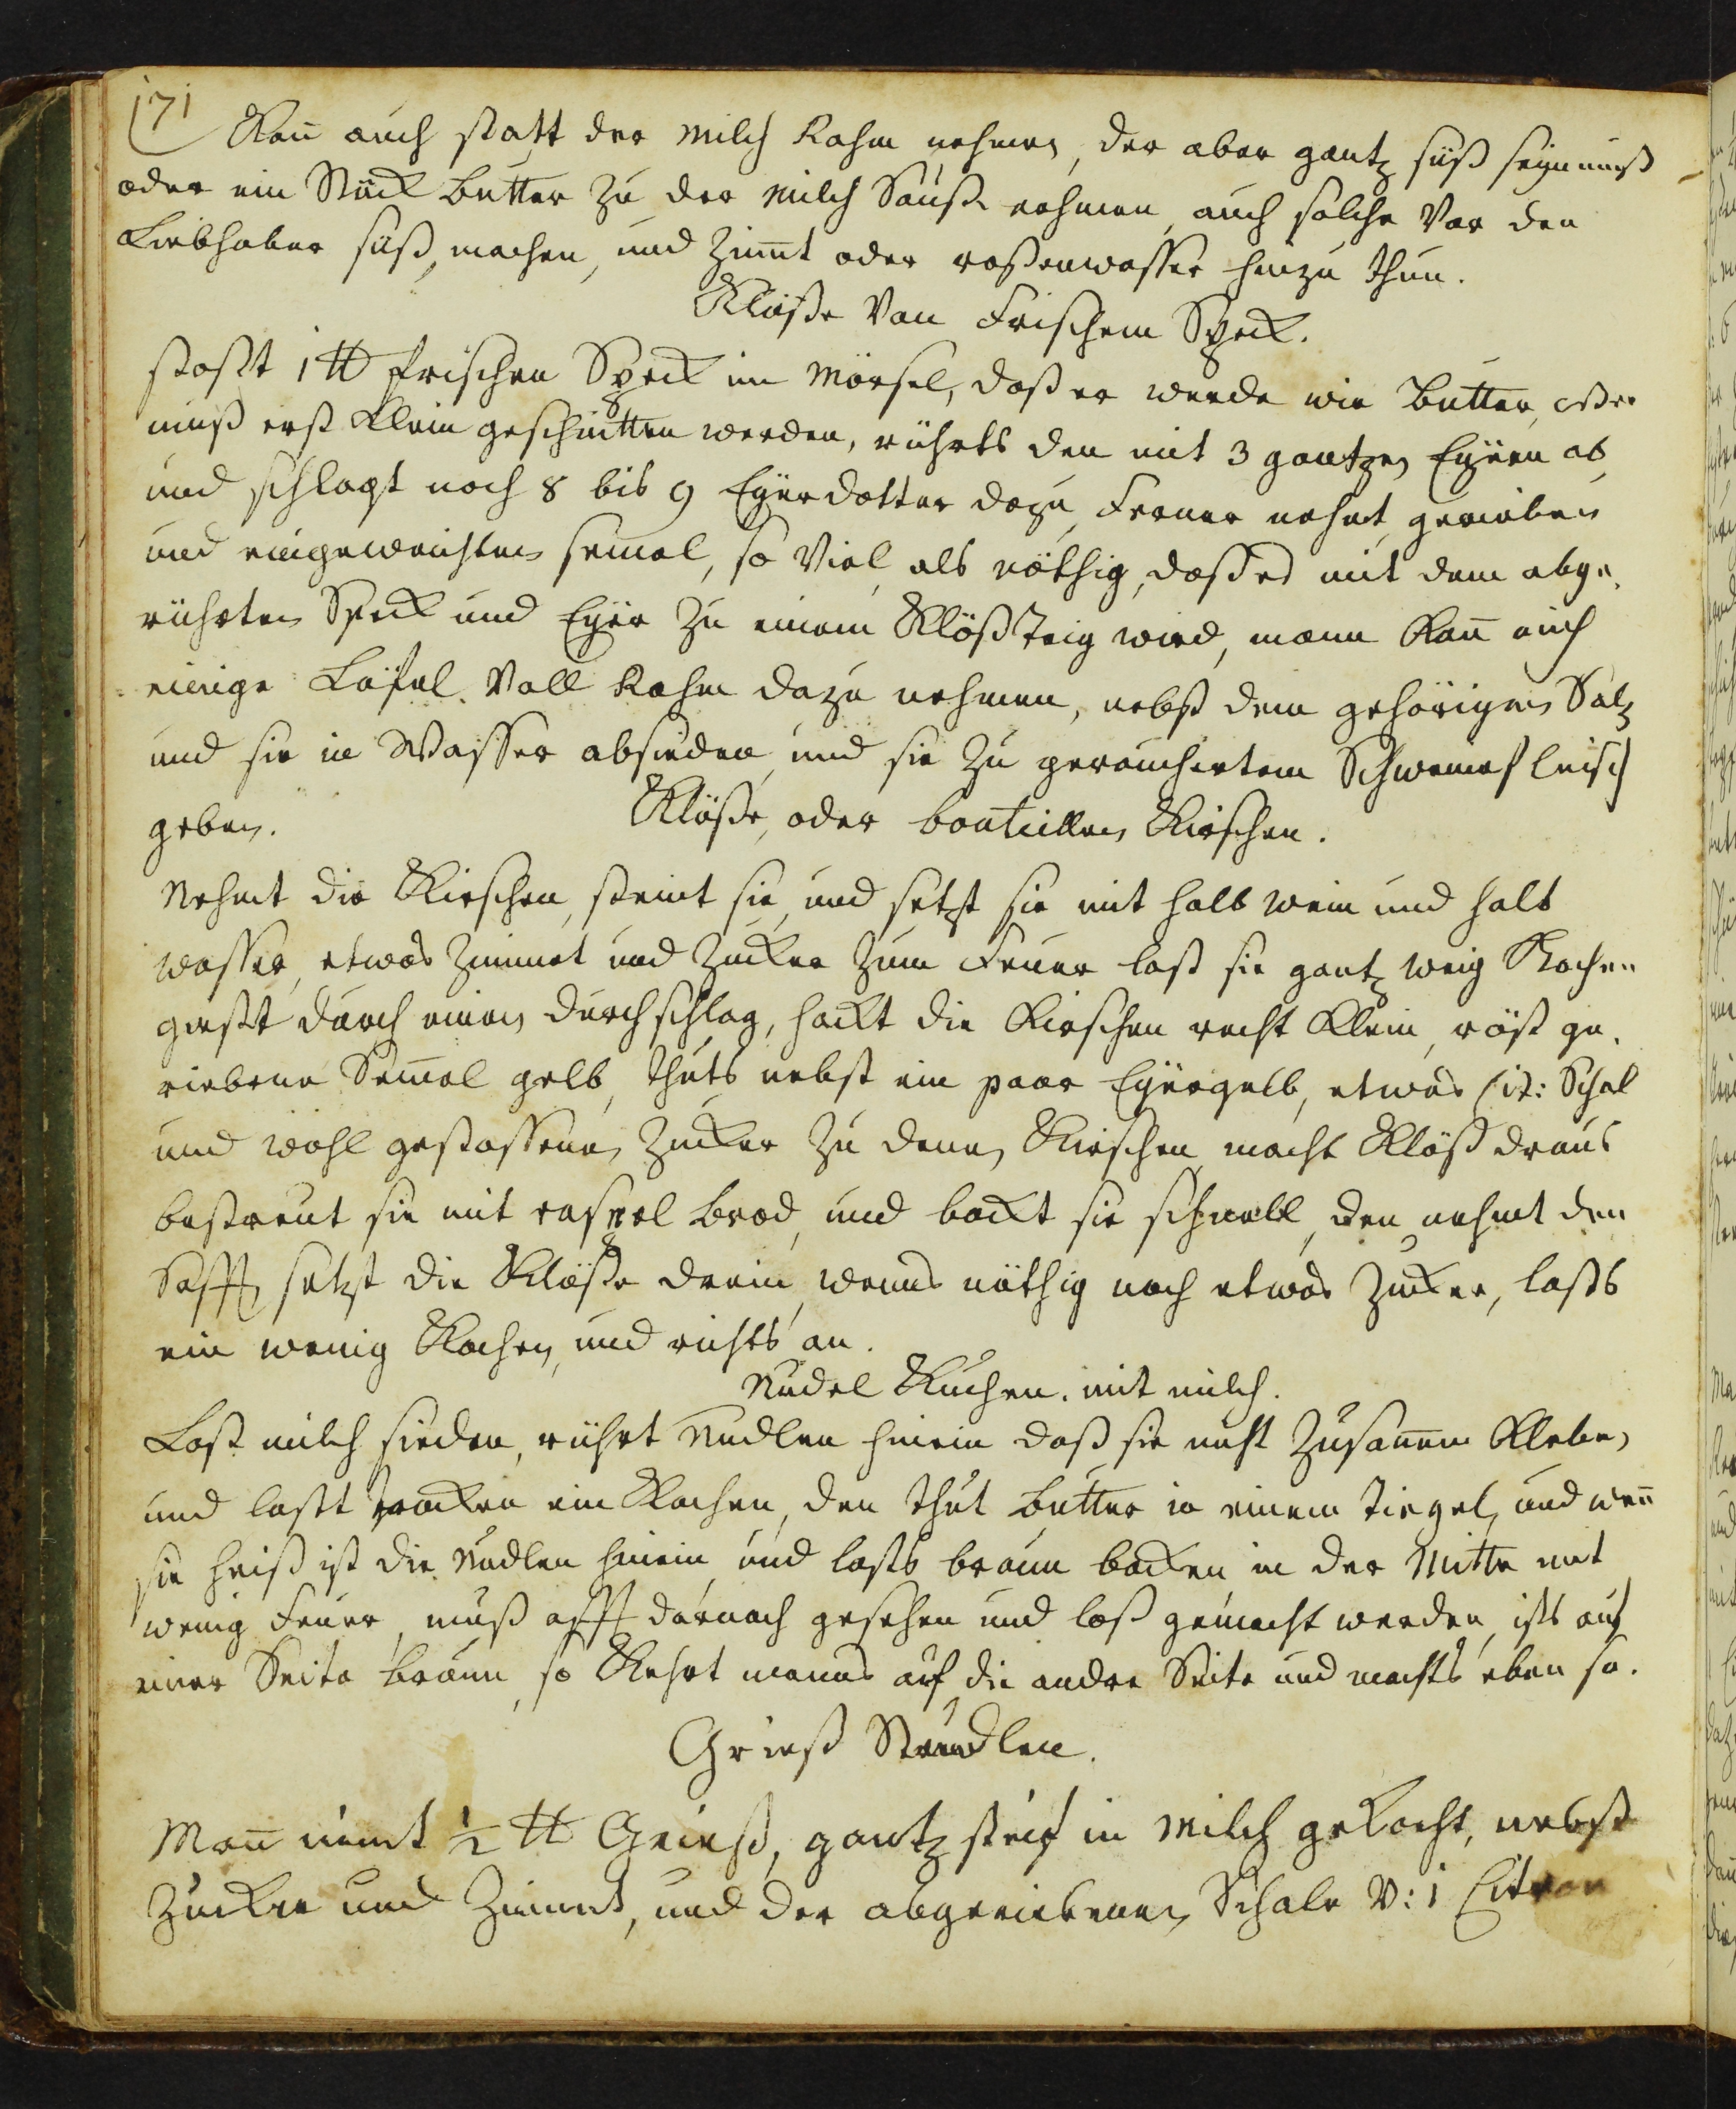 171
Kan̄ auch statt der Milch Rahm nehmen, der aber gantz süß seyn muß
oder ein Stück Butter zu der Milch Sauße nehmen, auch solche Vor den
Liebhaber süß, machen, und Zimt oder roßenwasser hinzu thun.
Klöße Von Frischem Speck.
stost 1 ℔ frischen Speck im Mörsel, daß er werde wie Butter,
muß erst Klein geschnitten werden, rührts den mit 3 gantzen Eyern ab
und schlagt noch 8 bis 9 Eyerdotter dazu, Ferner nehmt, gerieben
und eingeweichten semel, so Viel als nöthig, daß es mit dem abge„
rührten Speck und Eyer zu einem Klöß Teig wird, mann Kan̄ auch
einige Löfel Voll Rahm dazu nehmen, nebst dem gehörigen Saltz
und sie in Wasser absieden, und sie zu geräuchertem Schweinefleisch
geben.
Klöße, oder boutillen Kirschen.
Nehmt die Kirschen, steint sie, und setzt sie mit halb wein und halb
wasser, etwas Zimmet und Zucker zum Feuer last sie gantz weig Kochen
giest durch einen Durchschlag, hackt die Kirschen recht Klein, röst ge„
riebene Sem̄el gelb, thuts nebst ein paar Eyergelb, etwas Cit: Schal
und wohl gestossenen Zucker zu denen Kirschen, macht Klöß draus
bestreut sie mit raspel Brod, und backt sie schnell, den nehmt den
Safft, setzt die Klöße drein, wenns nöthig noch etwas Zucker, lasts
ein wenig Kochen, und richts an.
Nudel Kuchen. mit milch.
Last milch sieden, rührt Nudlen hinein daß sie nicht Zusam̄en Kleben,
und last trocken ein Kochen, den thut Butter in einem Tiegel, und wen̄
sie heiß ist die Nudlen hinein, und lasts braun backen, in der Mitte mit
wenig Feuer, muß offt darnach gesehen und loß gemacht werden, ists auf
einer Seite braun, so Kehrt manns auf die andre Seite und machts eben so.
Grieß Strudlen.
Man̄ nimt ½ ℔ Grieß, gantz steif in Milch gekocht, nebst
Zucker und Zimmt, und der abgeriebenen Schale v: 1 Citron